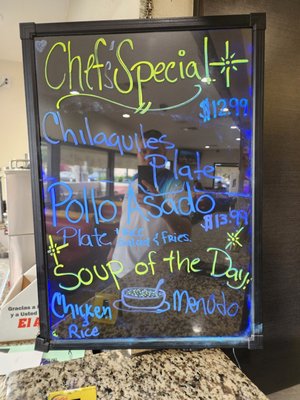 Chef's Special
$12.99
Chilaquiles
Plate
Pollo Asado
$13.99
Plate. & fries.
Soup of the Day
Chicken Menudo
Rice
Gracias
y a Usted
El A